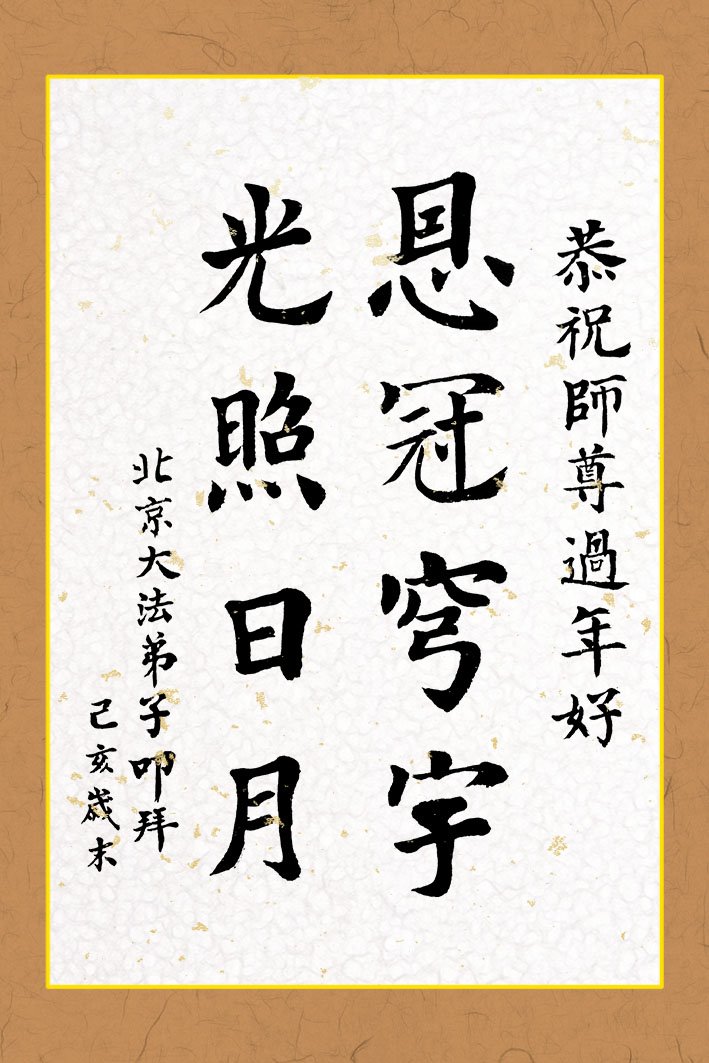 恭祝師尊過年好
恩冠穹宇
光照日月
北京大法弟子叩拜
己亥歲末